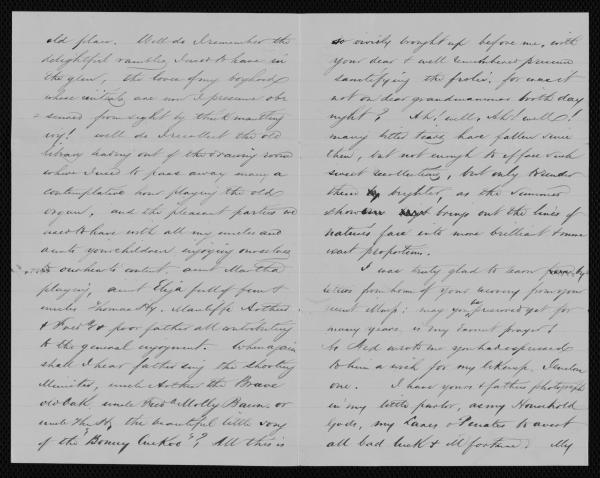 old place. Well do I remember the
delightful rambles I used to have in
the glen, the loves of my boyhood
whose initials are now I presume obs
=cured from sight by thick mantling
ivy! well do I recollect the old
library leading out of the drawing room
where I used to pass away many a
contemplative hour playing the old
organ, and the pleasant parties we
used to have with all my uncles and
aunts your children enjoying ourselves
to our hearts content, aunt Martha
playing, aunt Eliza full of fun &
uncles Thomas Hy. Arthur
& Fredk & poor father all contributing
to the general enjoyment. When again
shall I hear father sing the Shooting
Minister, uncle Arthur the Brave
old oak uncle Fredk Molly Bawn or
uncle Thos Hy. the beautiful little song
of the "Bonny Cuckoo"? All this is
so vividly brought up before me, with
your dear & well remembered presence
sanctifying the frolic, for was it
not on dear grandmamma's birth day
night? Ah! well, Ah! well!
many bitter tears have fallen since
then, but not enough to efface such
sweet recollections, but only to render
them brighter, as the summer
shower brings out the lines of
nature's face into more brilliant & more
exact proportions.
I was truly glad to learn by
letters from home of your recovery from your
recent illness: may you be preserved yet for
many years, is my earnest prayer!
he wrote me you had expressed
to him a wish for my likeness. I enclose
one. I have yours & fathers photographs
in my little parlor, as my Household
Gods, my Lares & Penates to avert
all bad luck & ill fortune. My